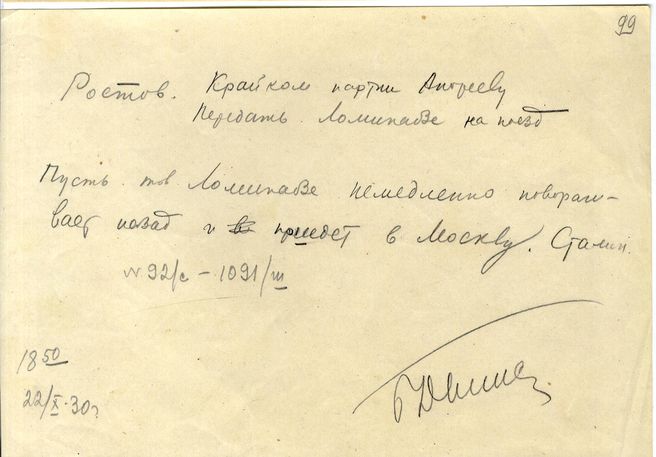 99
Ростов. Крайком партии Андрееву
Передать Ломинадзе на поезд
Пусть тов Ломинадзе немедленно поворачи-
вает назад и приедет в Москву. Сталин.
№ 92/с – 1091/ш
18 50
22/X-30г